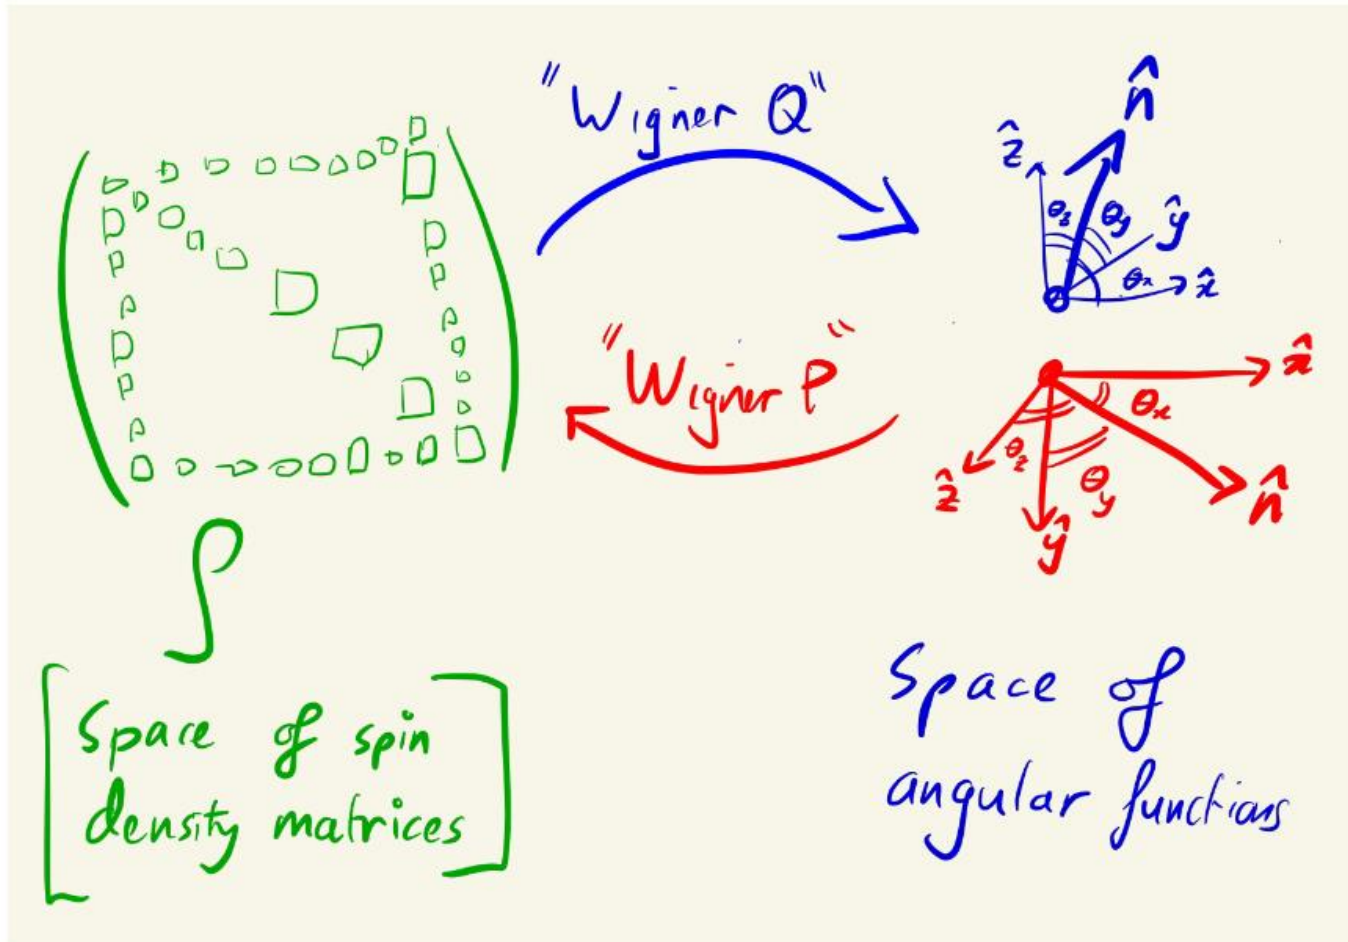 "Wigner Q"
n̂
ẑ
θz
θy
ŷ
θx
x̂
"Wigner P"
x̂
θx
θz
θy
ẑ
n̂
ŷ
ρ
Space of spin
density matrices
Space of
angular functions